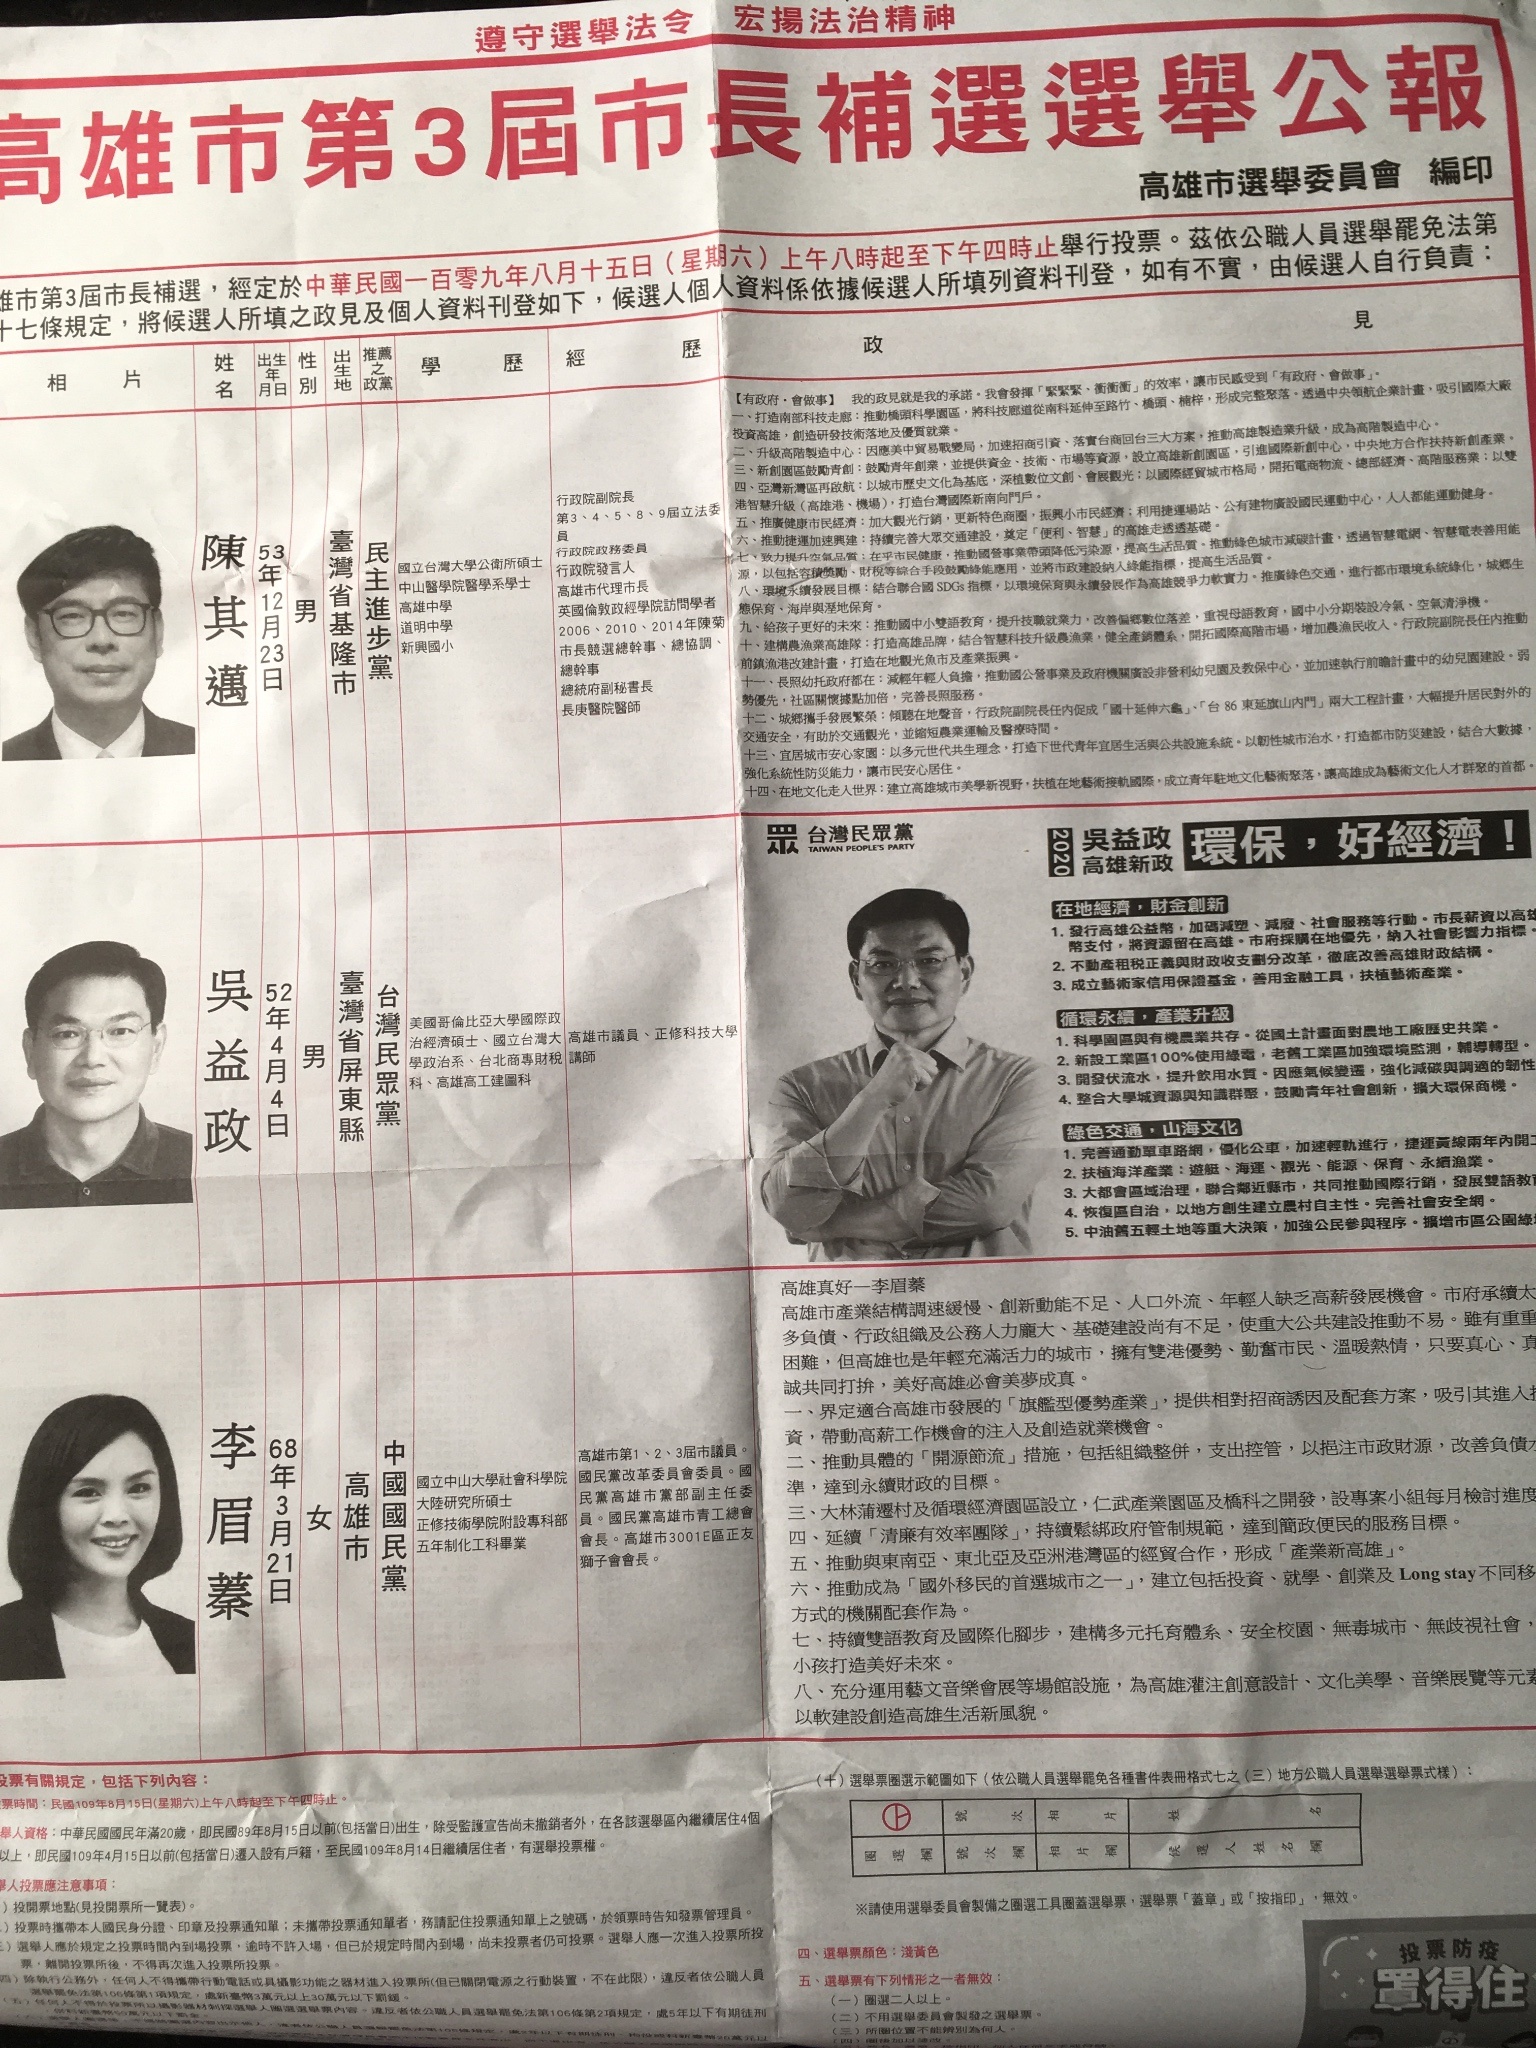 遵守選舉法令　宏揚法治精神
高雄市第3屆市長補選選舉公報
高雄市選舉委員會　編印
雄市第3屆市長補選，經定於中華民國一百零九年八月十五日（星期六）上午八時起至下午四時止舉行投票。茲依公職人員選舉罷免法第
十七條規定，將候選人所填之政見及個人資料刊登如下，候選人個人資料係依據候選人所填列資料刊登，如有不實，由候選人自行負責：
相片
姓名
出生年月日
性別
出生地
推薦之政黨
學歷
經歷
政見
陳其邁
53年12月23日
男
臺灣省基隆市
民主進步黨
國立台灣大學公衛所碩士
中山醫學院醫學系學士
高雄中學
道明中學
新興國小
行政院副院長
第3、4、5、8、9屆立法委
員
行政院政務委員
行政院發言人
高雄市代理市長
英國倫敦政經學院訪問學者
2006、2010、2014年陳菊
市長競選總幹事、總協調、
總幹事
總統府副秘書長
長庚醫院醫師
【有政府・會做事】　我的政見就是我的承諾。我會發揮「緊緊緊、衝衝衝」的效率，讓市民感受到「有政府、會做事」。
一、打造南部科技走廊：推動橋頭科學園區，將科技廊道從南科延伸至路竹、橋頭、楠梓，形成完整聚落。透過中央領航企業計畫，吸引國際大廠
投資高雄，創造研發技術落地及優質就業。
二、升級高階製造中心：因應美中貿易戰變局，加速招商引資、落實台商回台三大方案，推動高雄製造業升級，成為高階製造中心。
三、新創園區鼓勵青創：鼓勵青年創業，並提供資金、技術、市場等資源，設立高雄新創園區，引進國際新創中心，中央地方合作扶持新創產業。
四、亞灣新灣區再啟航：以城市歷史文化為基底，深植數位文創、會展觀光；以國際經貿城市格局，開拓電商物流、總部經濟、高階服務業；以雙
港智慧升級（高雄港、機場），打造台灣國際新南向門戶。
五、推廣健康市民經濟：加大觀光行銷，更新特色商圈，振興小市民經濟；利用捷運場站、公有建物廣設國民運動中心，人人都能運動健身。
六、推動捷運加速興建：持續完善大眾交通建設，奠定「便利、智慧」的高雄走透透基礎。
七、致力提升空氣品質：在乎市民健康，推動國營事業帶頭降低污染源，提高生活品質。推動綠色城市減碳計畫，透過智慧電網、智慧電表善用能
源，以包括容積獎勵、財稅等綜合手段鼓勵綠能應用，並將市政建設納入綠能指標，提高生活品質。
八、環境永續發展目標：結合聯合國 SDGs 指標，以環境保育與永續發展作為高雄競爭力軟實力。推廣綠色交通，進行都市環境系統綠化，城鄉生
態保育、海岸與溼地保育。
九、給孩子更好的未來：推動國中小雙語教育，提升技職就業力，改善偏鄉數位落差，重視母語教育，國中小分期裝設冷氣、空氣清淨機。
十、建構農漁業高雄隊：打造高雄品牌，結合智慧科技升級農漁業，健全產銷體系，開拓國際高階市場，增加農漁民收入。行政院副院長任內推動
前鎮漁港改建計畫，打造在地觀光魚市及產業振興。
十一、長照幼托政府都在：減輕年輕人負擔，推動國公營事業及政府機關廣設非營利幼兒園及教保中心，並加速執行前瞻計畫中的幼兒園建設。弱
勢優先，社區關懷據點加倍，完善長照服務。
十二、城鄉攜手發展繁榮：傾聽在地聲音，行政院副院長任內促成「國十延伸六龜」、「台 86 東延旗山內門」兩大工程計畫，大幅提升居民對外的
交通安全，有助於交通觀光，並縮短農業運輸及醫療時間。
十三、宜居城市安心家園：以多元世代共生理念，打造下世代青年宜居生活與公共設施系統。以韌性城市治水，打造都市防災建設，結合大數據，
強化系統性防災能力，讓市民安心居住。
十四、在地文化走入世界：建立高雄城市美學新視野，扶植在地藝術接軌國際，成立青年駐地文化藝術聚落，讓高雄成為藝術文化人才群聚的首都。
吳益政
52年4月4日
男
臺灣省屏東縣
台灣民眾黨
美國哥倫比亞大學國際政
治經濟碩士、國立台灣大
學政治系、台北商專財稅
科、高雄高工建圖科
高雄市議員、正修科技大學
講師
眾 台灣民眾黨
TAIWAN PEOPLE'S PARTY
2020 吳益政
高雄新政
環保，好經濟！
在地經濟，財金創新
1. 發行高雄公益幣，加碼減塑、減廢、社會服務等行動。市長薪資以高雄
幣支付，將資源留在高雄。市府採購在地優先，納入社會影響力指標。
2. 不動產租稅正義與財政收支劃分改革，徹底改善高雄財政結構。
3. 成立藝術家信用保證基金，善用金融工具，扶植藝術產業。
循環永續，產業升級
1. 科學園區與有機農業共存。從國土計畫面對農地工廠歷史共業。
2. 新設工業區100%使用綠電，老舊工業區加強環境監測，輔導轉型。
3. 開發伏流水，提升飲用水質。因應氣候變遷，強化減碳與調適的韌性
4. 整合大學城資源與知識群聚，鼓勵青年社會創新，擴大環保商機。
綠色交通，山海文化
1. 完善通勤單車路網，優化公車，加速輕軌進行，捷運黃線兩年內開工
2. 扶植海洋產業：遊艇、海運、觀光、能源、保育、永續漁業。
3. 大都會區域治理，聯合鄰近縣市，共同推動國際行銷，發展雙語教育
4. 恢復區自治，以地方創生建立農村自主性。完善社會安全網。
5. 中油舊五輕土地等重大決策，加強公民參與程序。擴增市區公園綠地
李眉蓁
68年3月21日
女
高雄市
中國國民黨
國立中山大學社會科學院
大陸研究所碩士
正修技術學院附設專科部
五年制化工科畢業
高雄市第1、2、3屆市議員。
國民黨改革委員會委員。國
民黨高雄市黨部副主任委
員。國民黨高雄市青工總會
會長。高雄市3001E區正友
獅子會會長。
高雄真好—李眉蓁
高雄市產業結構調速緩慢、創新動能不足、人口外流、年輕人缺乏高薪發展機會。市府承續太
多負債、行政組織及公務人力龐大、基礎建設尚有不足，使重大公共建設推動不易。雖有重重
困難，但高雄也是年輕充滿活力的城市，擁有雙港優勢、勤奮市民、溫暖熱情，只要真心、真
誠共同打拚，美好高雄必會美夢成真。
一、界定適合高雄市發展的「旗艦型優勢產業」，提供相對招商誘因及配套方案，吸引其進入投
資，帶動高薪工作機會的注入及創造就業機會。
二、推動具體的「開源節流」措施，包括組織整併，支出控管，以挹注市政財源，改善負債水
準，達到永續財政的目標。
三、大林蒲遷村及循環經濟園區設立，仁武產業園區及橋科之開發，設專案小組每月檢討進度
四、延續「清廉有效率團隊」，持續鬆綁政府管制規範，達到簡政便民的服務目標。
五、推動與東南亞、東北亞及亞洲港灣區的經貿合作，形成「產業新高雄」。
六、推動成為「國外移民的首選城市之一」，建立包括投資、就學、創業及 Long stay 不同移
方式的機關配套作為。
七、持續雙語教育及國際化腳步，建構多元托育體系、安全校園、無毒城市、無歧視社會，
小孩打造美好未來。
八、充分運用藝文音樂會展等場館設施，為高雄灌注創意設計、文化美學、音樂展覽等元素
以軟建設創造高雄生活新風貌。
投票有關規定，包括下列內容：
票時間：民國109年8月15日(星期六)上午八時起至下午四時止。
舉人資格：中華民國國民年滿20歲，即民國89年8月15日以前(包括當日)出生，除受監護宣告尚未撤銷者外，在各該選舉區內繼續居住4個
以上，即民國109年4月15日以前(包括當日)遷入設有戶籍，至民國109年8月14日繼續居住者，有選舉投票權。
舉人投票應注意事項：
）投開票地點(見投開票所一覽表)。
）投票時攜帶本人國民身分證、印章及投票通知單；未攜帶投票通知單者，務請記住投票通知單上之號碼，於領票時告知發票管理員。
三）選舉人應於規定之投票時間內到場投票，逾時不許入場，但已於規定時間內到場，尚未投票者仍可投票。選舉人應一次進入投票所投
票，離開投票所後，不得再次進入投票所投票。
四）除執行公務外，任何人不得攜帶行動電話或具攝影功能之器材進入投票所(但已關閉電源之行動裝置，不在此限)，違反者依公職人員
選舉罷免法第106條第1項規定，處新臺幣3萬元以上30萬元以下罰鍰。
（五）任何人不得於投票所以攝影器材刺探選舉人圈選選舉票內容，違反者依公職人員選舉罷免法第106條第2項規定，處5年以下有期徒刑
（十）選舉票圈選示範圖如下（依公職人員選舉罷免各種書件表冊格式七之（三）地方公職人員選舉選舉票式樣）：
號次
相片
姓名
圈選欄
號次欄
相片欄
候選人姓名欄
※請使用選舉委員會製備之圈選工具圈蓋選舉票，選舉票「蓋章」或「按指印」，無效。
四、選舉票顏色：淺黃色
五、選舉票有下列情形之一者無效：
（一）圈選二人以上。
（二）不用選舉委員會製發之選舉票。
（三）所圈位置不能辨別為何人。
投票防疫
罩得住